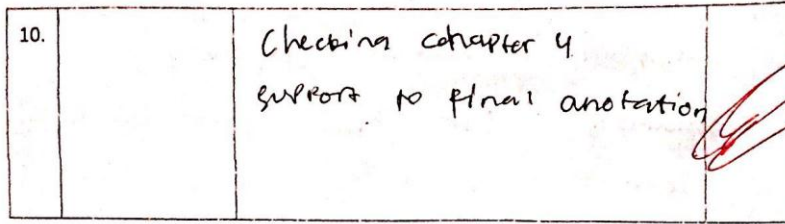 10.
Checking cohapter 4
support to final anotation